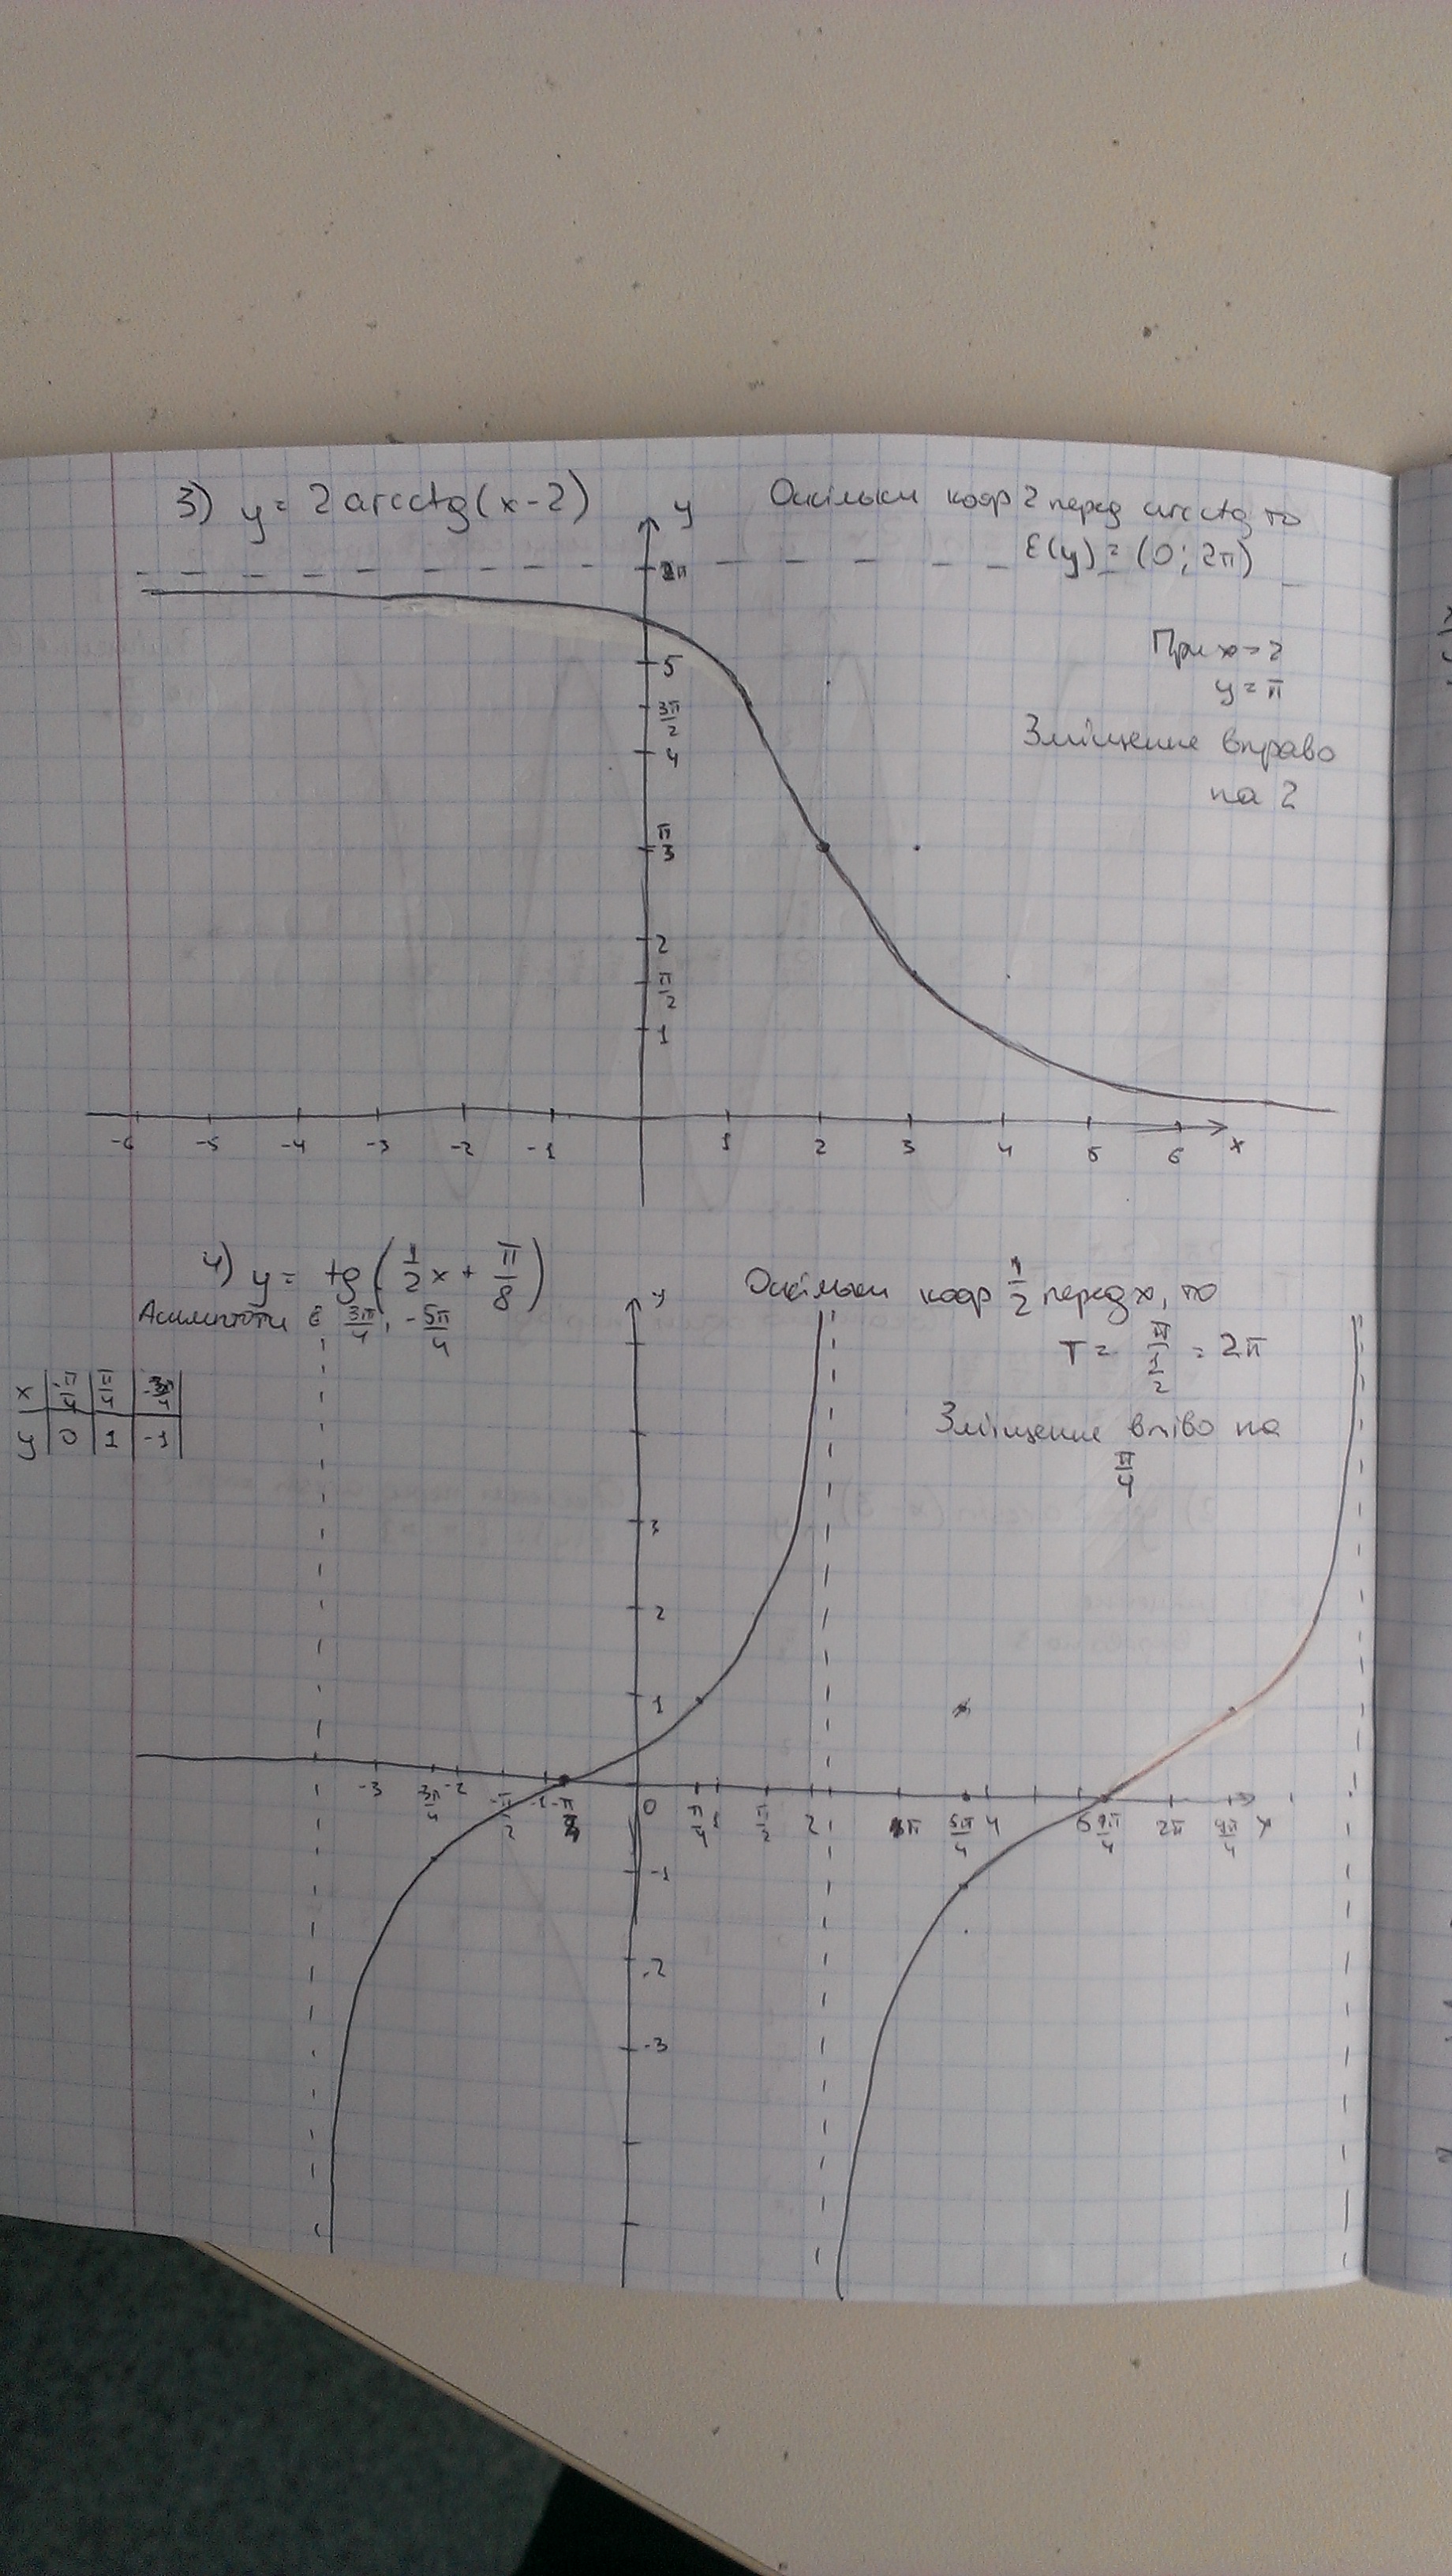 3) y = 2 arcctg(x-2)
Оскільки коеф 2 перед arcctg то
E(y) = (0; 2π)
При x = 2
y = π
Зміщення вправо
на 2
y
2π
5
3π/2
4
π
3
2
π/2
1
-6 -5 -4 -3 -2 -1 1 2 3 4 5 6 x
4) y = tg(1/2 x + π/8)
Асимптоти є 3π/4, -5π/4
Оскільки коеф 1/2 перед x, то
T = π/(1/2) = 2π
Зміщення вліво на
π/4
x | -π/4 | π/4 | -3π/4
y | 0 | 1 | -1
y
3
2
1
-3 3π/4 -2 -π/2 -1 -π/4 0 π/4 1 π/2 2 π 5π/4 4 5 2π 9π/4 x
-1
-2
-3